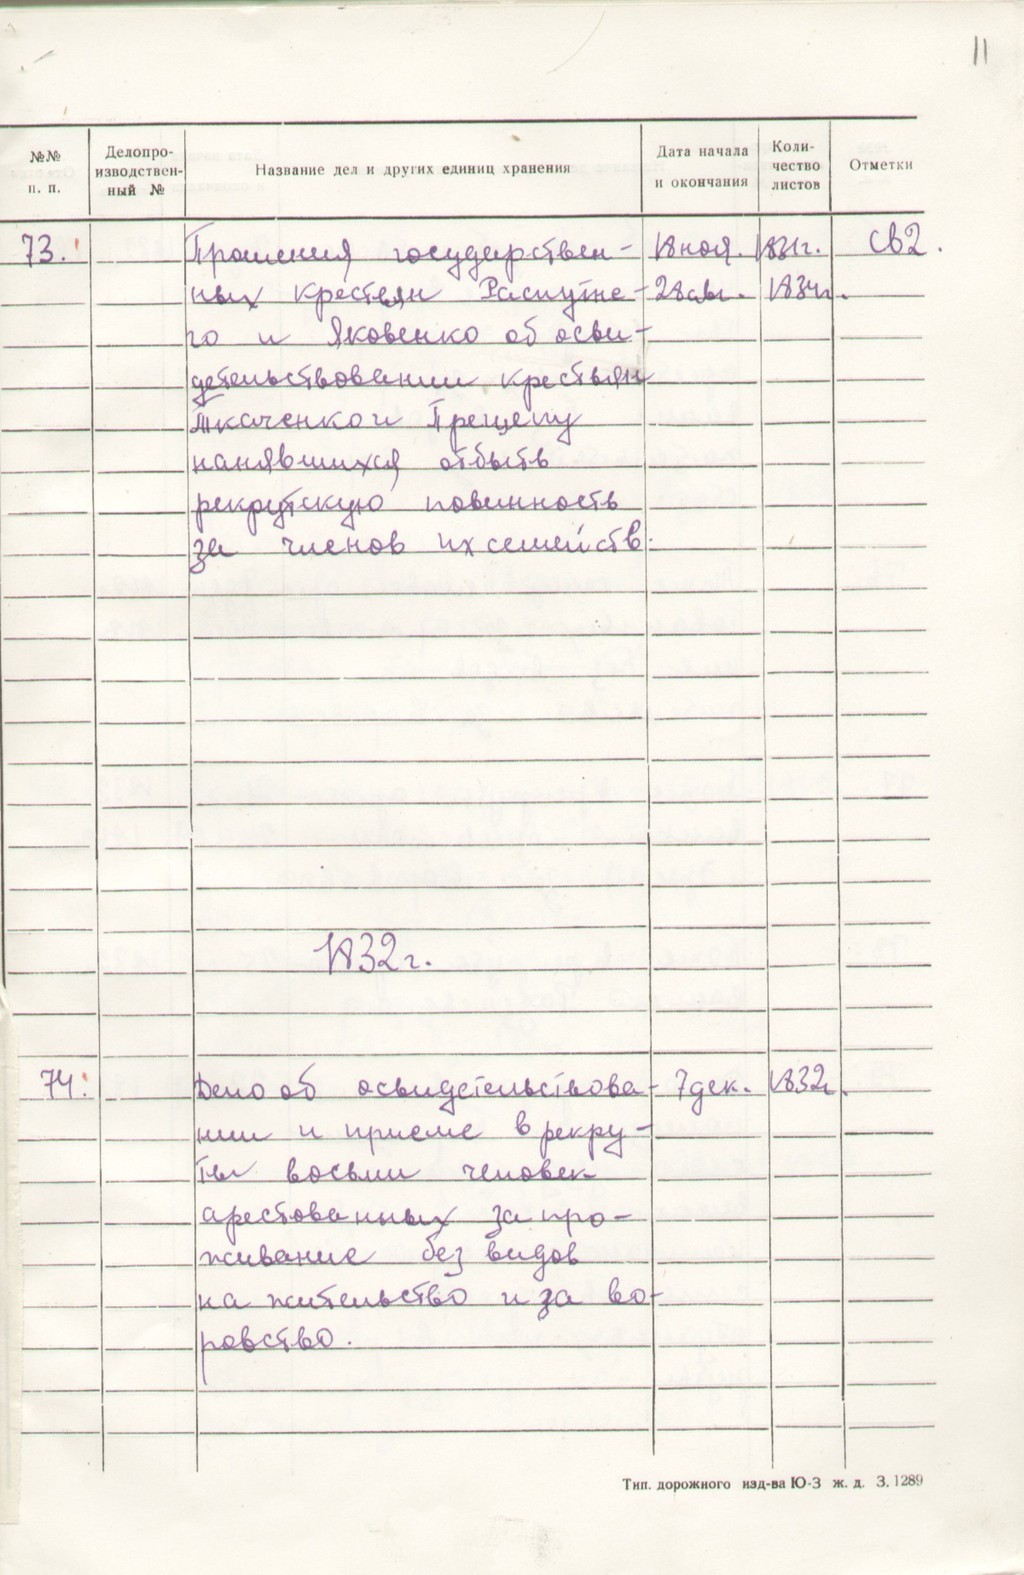 11
№№ п. п. Делопро-изводствен-ный № Название дел и других единиц хранения Дата начала и окончания Коли-чество листов Отметки
73. Прошения государствен- 18 ноя. 1831г. св2.
ных крестьян Распутне- 28 авг. 1834г.
го и Яковенко об осви-
детельствовании крестьян
Ткаченко и Прещепу
нанявшихся отбыть
рекрутскую повинность
за членов их семейств.
1832г.
74. Дело об освидетельствова- 7 дек. 1832г.
нии и приеме в рекру-
ты восьми человек
арестованных за про-
живание без видов
на жительство и за во-
ровство.
Тип. дорожного изд-ва Ю-З ж. д. З. 1289